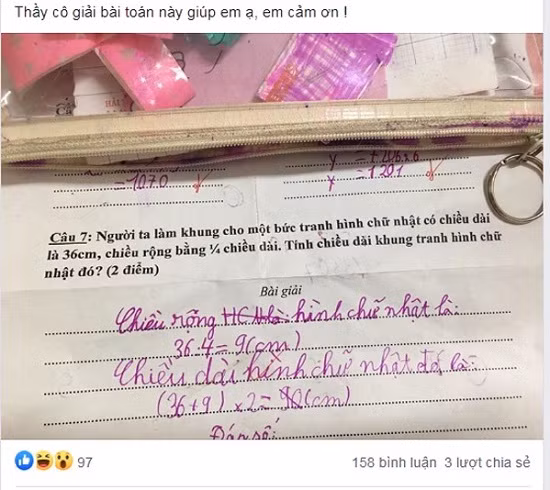 Thầy cô giải bài toán này giúp em ạ, em cảm ơn !
= 1070
y = 1201
Câu 7: Người ta làm khung cho một bức tranh hình chữ nhật có chiều dài
là 36cm, chiều rộng bằng ¼ chiều dài. Tính chiều dài khung tranh hình chữ
nhật đó? (2 điểm)
Bài giải
Chiều rộng hình chữ nhật là:
36:4=9(cm)
Chiều dài hình chữ nhật đó là:
(36+9) x2=90(cm)
Đáp số:
97
158 bình luận 3 lượt chia sẻ